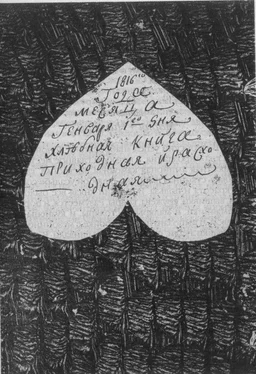 1816го
Года
месяца
Генваря 1го дня
хлѣбная книга
приходная и расхо
дная